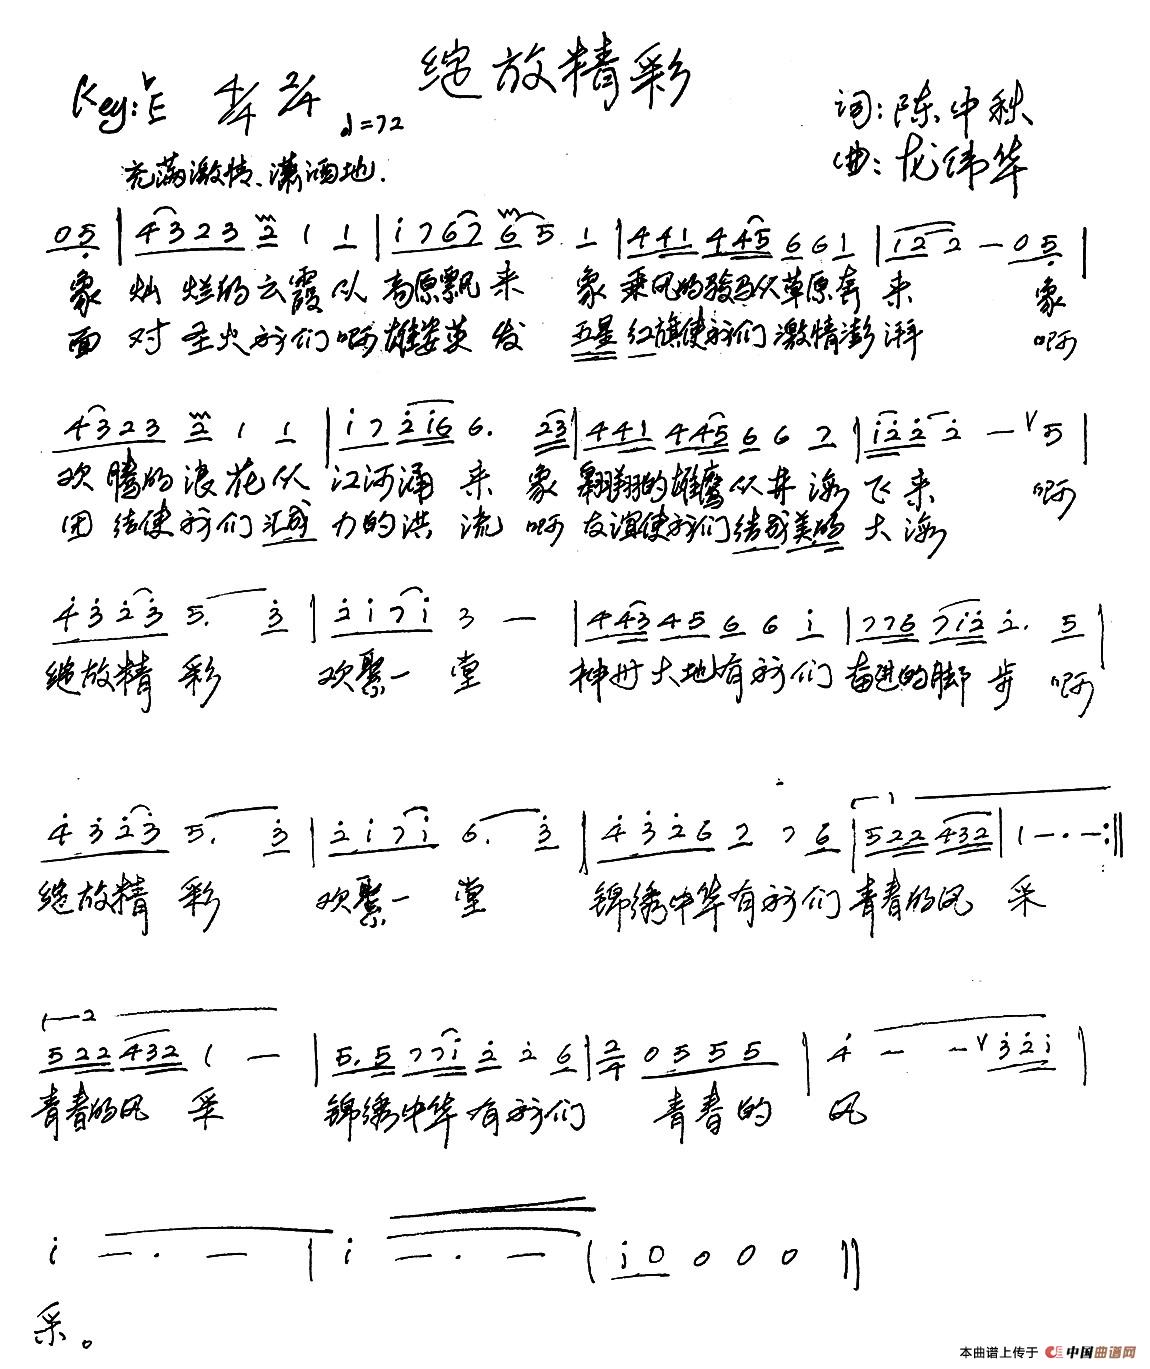 绽放精彩
Key:♭E 4/4 2/4 ♩=72
词:陈中秋
曲:龙纬华
充满激情、潇洒地.
05|4323 2 1 1|i767 65. 1|441 445 661|i22-05|
象灿烂的云霞从高原飘来 象乘风的骏马从草原奔来 象
面对圣火我们啊雄姿英发 五星红旗使我们激情澎湃 啊
4323 2 1 1|i7 2i6 6. 23|441 445 6 6 7|i22 2-∨5|
欢腾的浪花从江河涌来 象翱翔的雄鹰从 海飞来 啊
团结使我们汇成力的洪流 啊友谊使我们结成美的大海
4323 5. 3|2i7i 3-|443 45 6 6 i|776 7i2 2. 5|
绽放精彩 欢聚一堂 神州大地有我们奋进的脚步 啊
4323 5. 3|2i7i 6. 3|4326 7 7 6|522 432|1-·-:‖
绽放精彩 欢聚一堂 锦绣中华有我们青春的风采
522 432 1-|5.5 77i 2 2 6|2/4 0555|4---∨32i|
青春的风采 锦绣中华有我们 青春的 风
i-·-|i-·-|i0 0 0 0‖
采。
本曲谱上传于 中国曲谱网